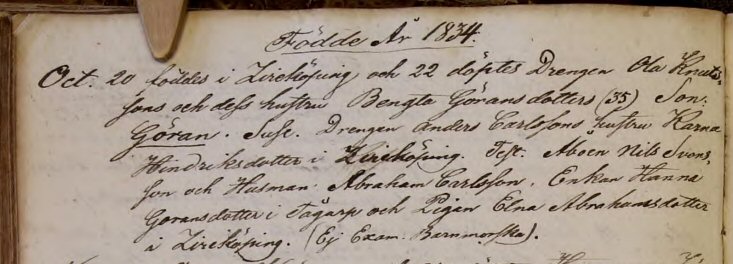 Födde År 1834.
Oct. 20 föddes i Zireköping och 22 döptes Drengen Ola Knuts-
sons och dess hustru Bengta Göransdotters (35) Son:
Göran. Susc. Drengen Anders Carlssons hustru Karna
Hindriksdotter i Zireköping. Test. Aboen Nils Svens-
son och Husman Abraham Carlsson, Enkan Hanna
Göransdotter i Tågarp och Pigan Elna Abrahamsdotter
i Zireköping. (Ej Exam. Barnmorska).